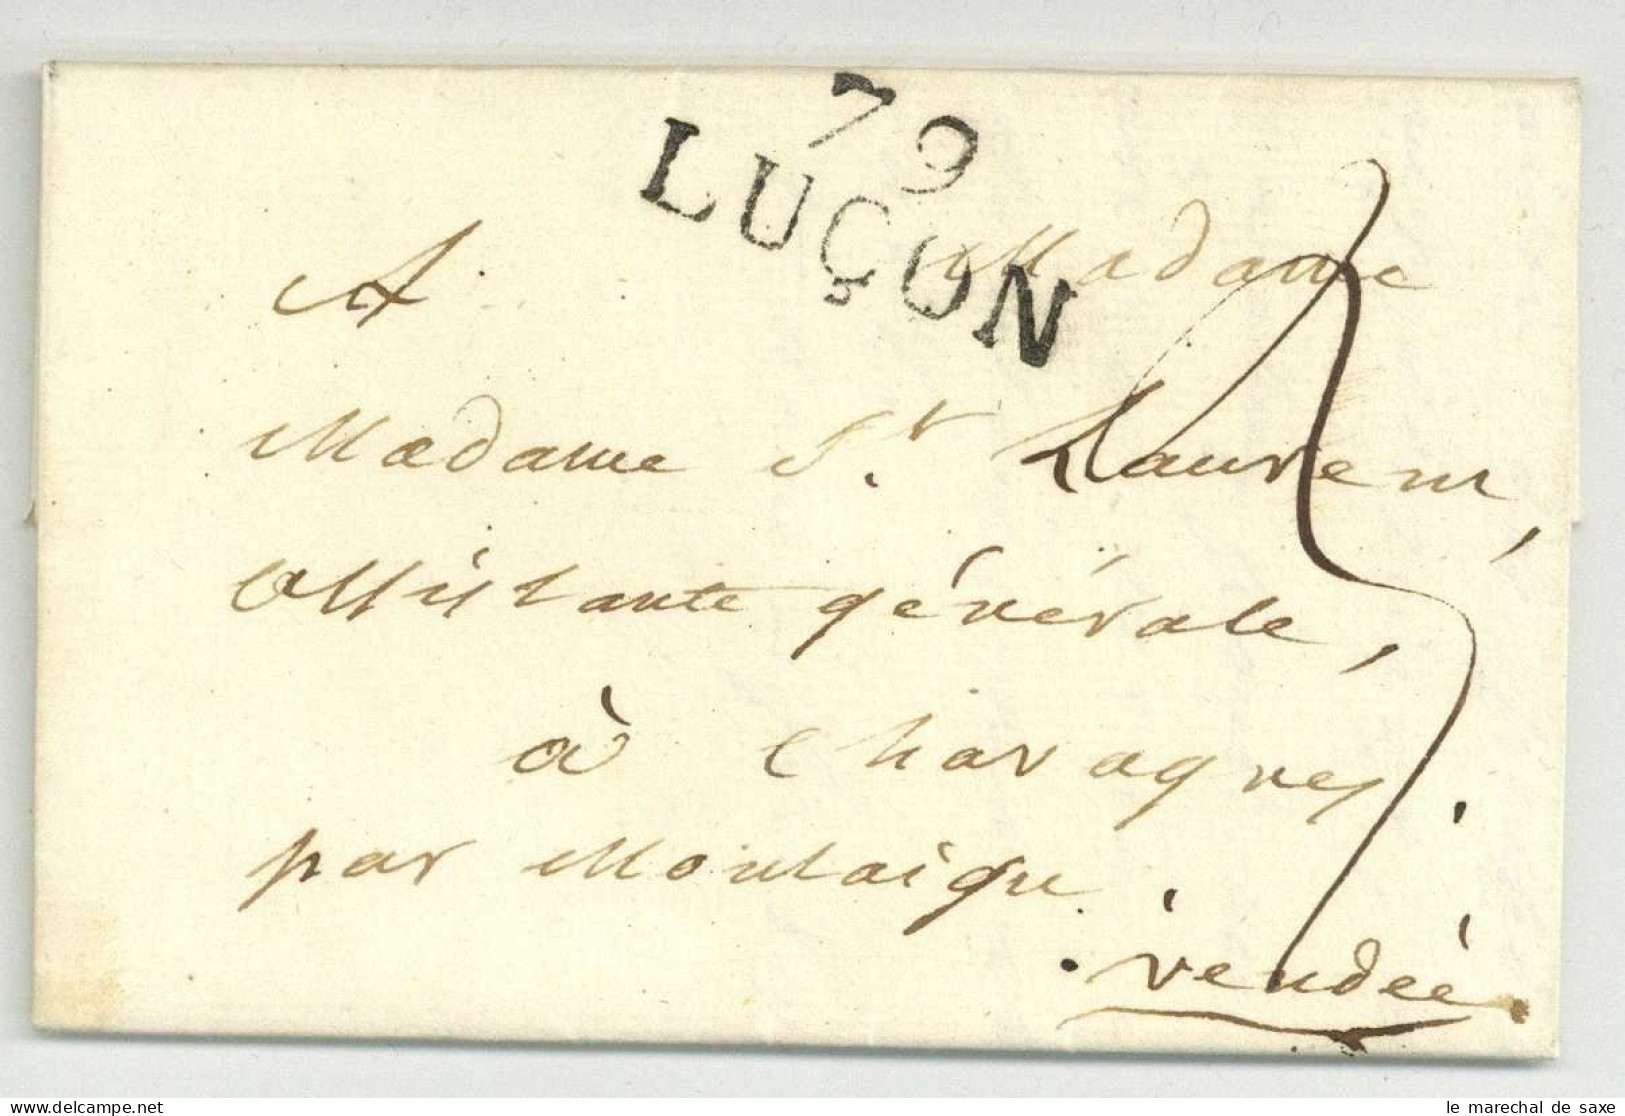 79
LUÇON
A Madame
Madame St. Laurent,
assistante générale,
à Chavagnes
par Montaigu.
vendée
delcampe.net
le marechal de saxe